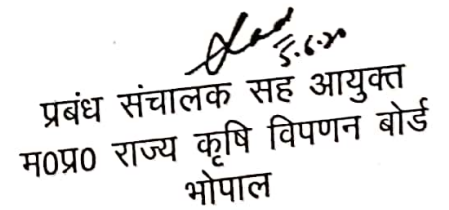 5.6.20
प्रबंध संचालक सह आयुक्त
म0प्र0 राज्य कृषि विपणन बोर्ड
भोपाल